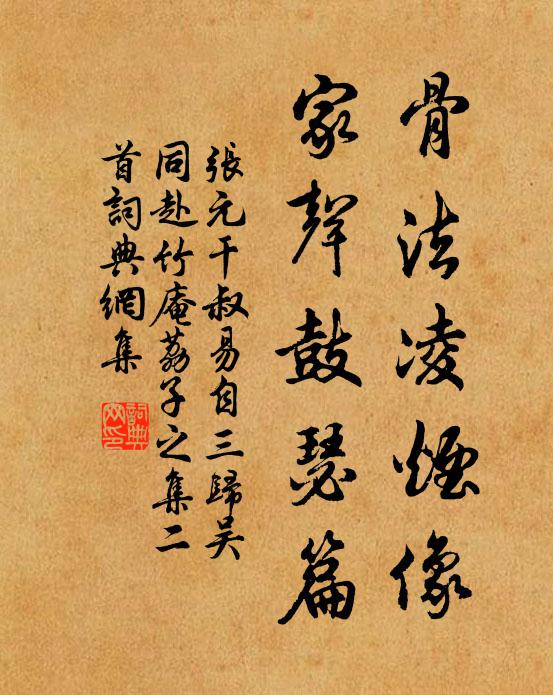 骨法凌煙像
家聲鼓瑟篇
張元干叔易自三歸吴
同赴竹庵荔子之集二
首詞典網集
詞典网印